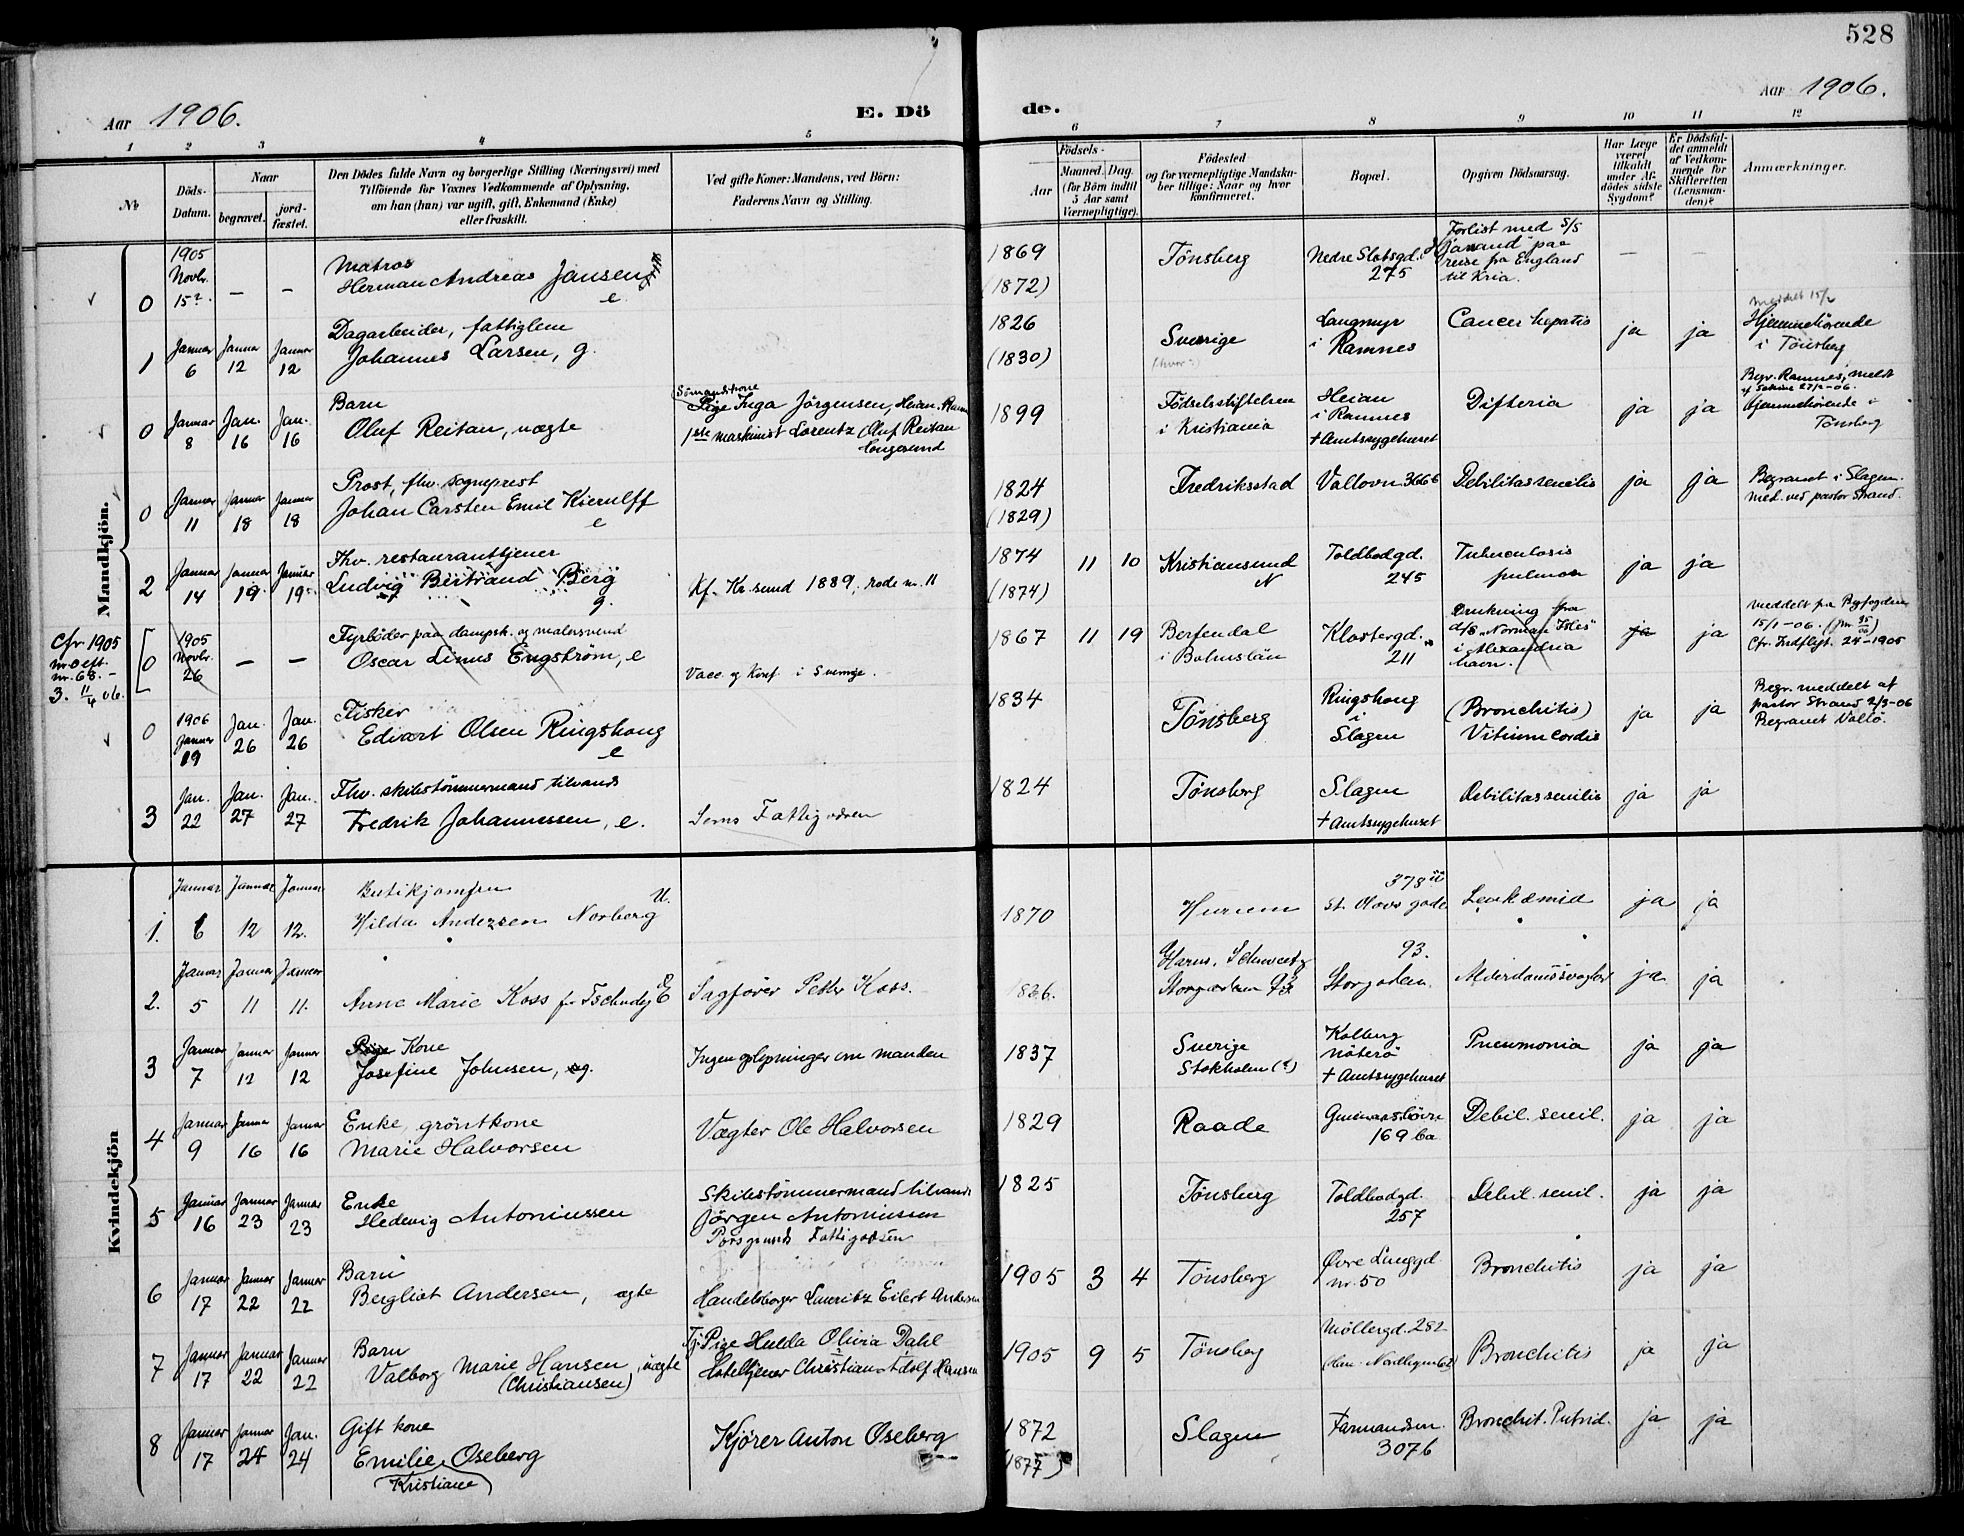 528
Aar 1906.
E. Dö
de.
Aar 1906.
1 2 3 4 5 6 7 8 9 10 11 12
No
Döds-
Datum.
Naar
begravet.
jord-
fæstet.
Den Dödes fulde Navn og borgerlige Stilling (Næringsvei) med
Tilföiende for Voxnes Vedkommende af Oplysning,
om han (hun) var ugift, gift, Enkemand (Enke)
eller fraskilt.
Ved gifte Koner: Mandens, ved Börn:
Faderens Navn og Stilling.
Födsels-
Aar
Maaned. Dag.
(for Börn indtil
5 Aar samt
Værnepligtige).
Födested
og for værnepligtige Mandska-
ber tillige: Naar og hvor
konfirmeret.
Bopæl.
Opgiven Dödsaarsag.
Har Læge
været
tilkaldt
under Af-
dödes sidste
Sygdom?
Er Dödsfal-
det anmeldt
af Vedkom-
mende for
Skifteretten
(Lensman-
den)?
Anmærkninger.
Mandkjön.
0
1905
Novbr.
15?.
— —
Matros
Herman Andreas Jansen
e
1869
(1872)
Tönsberg
Nedre Slotsgd.
275
Forlist med S/S
"Varnand" paa
reise fra England
til Kria.
— —
1
Januar
6
Januar
12
Januar
12
Dagarbeider, fattiglem
Johannes Larsen, g.
1826
(1830)
Sverige
(hvor?)
Langmyr
i Ramnes
Cancer hepatis
ja ja
meddelt 15/2
Hjemmehörende
i Tönsberg
0
Januar
8
Jan.
16
Jan.
16
Barn
Oluf Reitan, uægte
Sömandskone
Pige Inga Jörgensen, Heian, Ramn
1ste maskinist Lorentz Oluf Reitan
Langesund
1899
Födselsstiftelsen
i Kristiania
Heian
i Ramnes
+ Amtssygehuset
Difteria
ja ja
Begr. Ramnes, meldt
27/2-06.
Hjemmehörende i
Tönsberg
0
Januar
11
Januar
18
Januar
18
Prost, fhv. sogneprest
Johan Carsten Emil Kierulff
e
1824
(1829)
Fredriksstad
Vallövn. 366b
Debilitas senilis
ja ja
Begravet i Slagen.
Med. ved pastor Strand.
2
Januar
14
Januar
19.
Januar
19.
Fhv. restauranttjener
Ludvig Bertrand Berg
g.
Kf. Kr.sund 1889, rode nr. 11
1874
(1874)
11 10
Kristiansund
N
Toldbodgd.
245
Tuberculosis
pulmon
ja ja
Cfr. 1905
nr. 0 eft.
nr. 68. –
3. 11/4 06.
0
1905
Novbr.
26
— —
Fyrböder paa dampsk. og malersvend
Oscar Linus Engström, e
Vacc. og Konf. i Sverige.
1867
11 19
Berfendal
i Bohuslän
Klostergd.
211
Drukning fra
d/s "Norman Isles"
i Alexandria
havn.
ja ja
Meddelt fra Byfogden
15/1-06.
Cfr. Indflyt. 24-1905
0
1906
Januar
19
Jan.
26
Jan.
26
Fisker
Edvart Olsen Ringshaug
e
1834
Tönsberg
Ringshaug
i
Slagen
(Bronchitis)
Vitium Cordis
ja ja
Begr. meddelt af
pastor Strand 2/3-06
Begravet Vallö.
3
Jan.
22
Jan.
27
Jan.
27
Fhv. skibstömmermand tilvands
Fredrik Johannessen, e.
Sems Fattigvæsen
1824
Tönsberg
Slagen
+ Amtssygehuset
Debilitas senilis
ja ja
Kvindekjön
1.
Januar
6
Januar
12
Januar
12.
Butikjomfru
Hilda Andersen Norberg U.
1870
Hurum
378
St. Olavs gade
Leukæmid
ja ja
2.
Januar
5
Januar
11
Januar
11.
Anne Marie Koss f. Tschudy E
Sagförer Petter Koss.
1826.
Glarus, Schweetz
93.
Storgaden.
Alderdomssvaghed
ja ja
3
Januar
7
Januar
12
Januar
12
Kone
Josefine Johnsen, g.
Ingen oplysninger om manden
1837
Sverige
Stokholm (?)
Kolberg
Nöterö
+ Amtssygehuset
Pneumonia
ja ja
4
Januar
9
Januar
16
Januar
16
Enke, gröntkone
Marie Halvorsen
Vægter Ole Halvorsen
1829
Raade
169 ba
Debil. senil.
ja ja
5
Januar
16
Januar
23
Januar
23
Enke
Hedevig Antoniussen
Skibstömmermand tilvands
Jörgen Antoniussen
Porsgrunds Fattigvæsen
1825
Tönsberg
Toldbodgd.
257
Debil. senil.
ja ja
6
Januar
17
Januar
22
Januar
22
Barn
Bergliot Andersen, ægte
Handelsborger Lauritz Eilert Andersen
1905
3 4
Tönsberg
Övre Langgd
nr. 50
Bronchitis
ja ja
7
Januar
17
Januar
22
Januar
22
Barn
Valborg Marie Hansen, uægte
(Christiansen)
Tj. Pige Hulda Olivia Dahl
Hoteltjener Christian Adolf Hansen
1905
9 5
Tönsberg
Möllergd. 282
Bronchitis
ja ja
8
Januar
17
Januar
24
Jan.
24
Gift kone
Emilie Oseberg
Kristiane
Kjörer Anton Oseberg
1872
(1877)
Slagen
Farmandsvn.
307b
Bronchit. Putrid.
ja ja